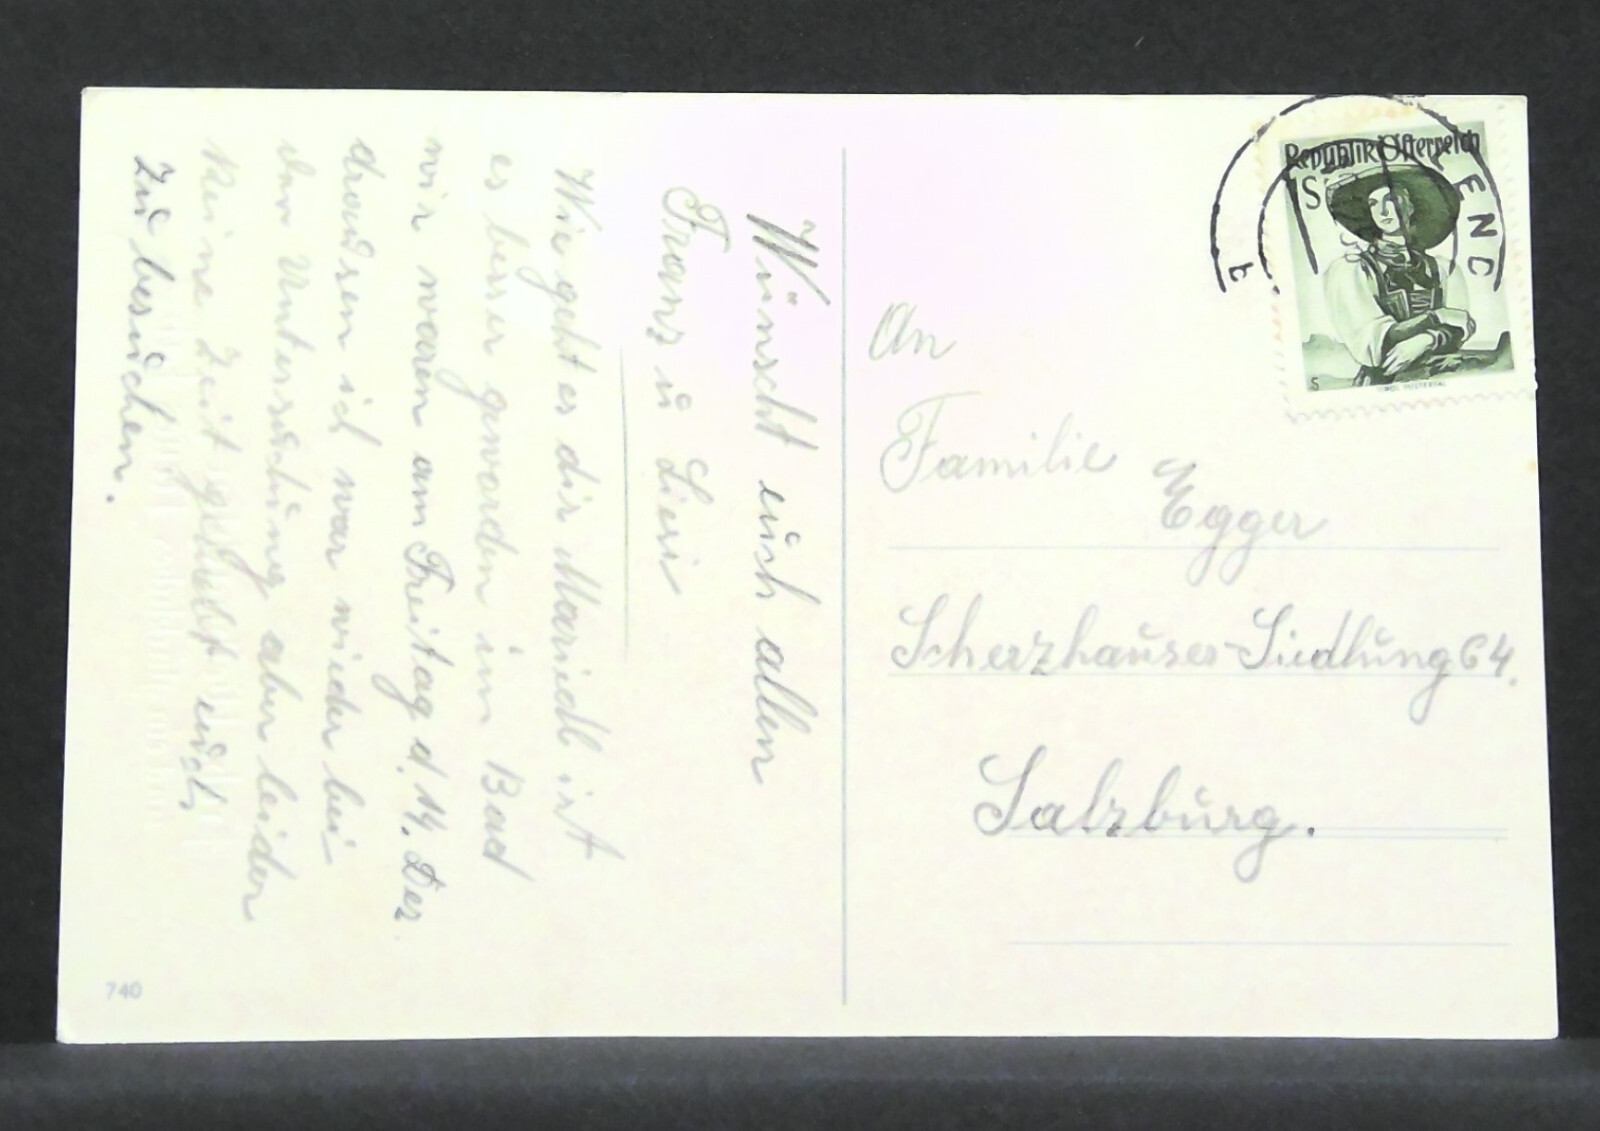 Wünscht euch allen
Franz u Liesi
Wie geht es dir Mariedl ist
es besser geworden im Bad
wir waren am Freitag d. 14. Dez.
draussen ich war wieder bei
der Untersuchung aber leider
keine Zeit gehabt euch
zu besuchen.
740
Republik Österreich
1S
TIROL PUSTERTAL
An
Familie
Egger
Scherzhauser-Siedlung 64.
Salzburg.